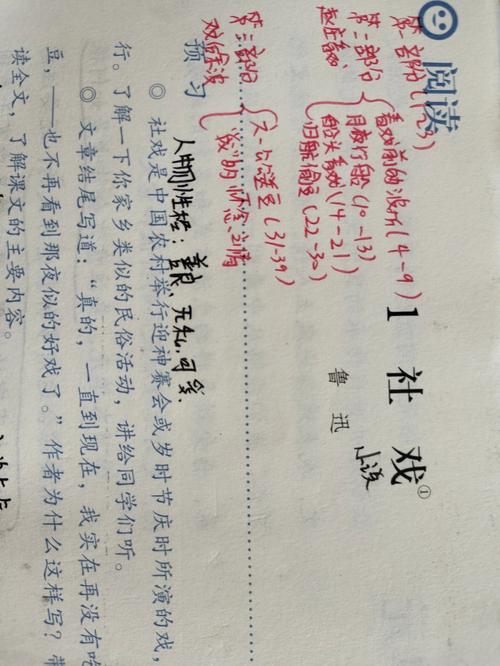 阅读
1 社戏①
鲁迅
小说
第一部分(1-3)
第二部分
赵庄看戏
看戏前的波折(4-9)
月夜行船(10-13)
船头看戏(14-21)
归航偷豆(22-30)
第三部分
戏后余波
六一公送豆(31-39)
预习
人物性格:善良、无私、可爱
◎ 社戏是中国农村举行迎神赛会或岁时节庆时所演的戏,
行。了解一下你家乡类似的民俗活动,讲给同学们听。
◎ 文章结尾写道:“真的,一直到现在,我实在再没有吃
豆,——也不再看到那夜似的好戏了。”作者为什么这样写?带
读全文,了解课文的主要内容。